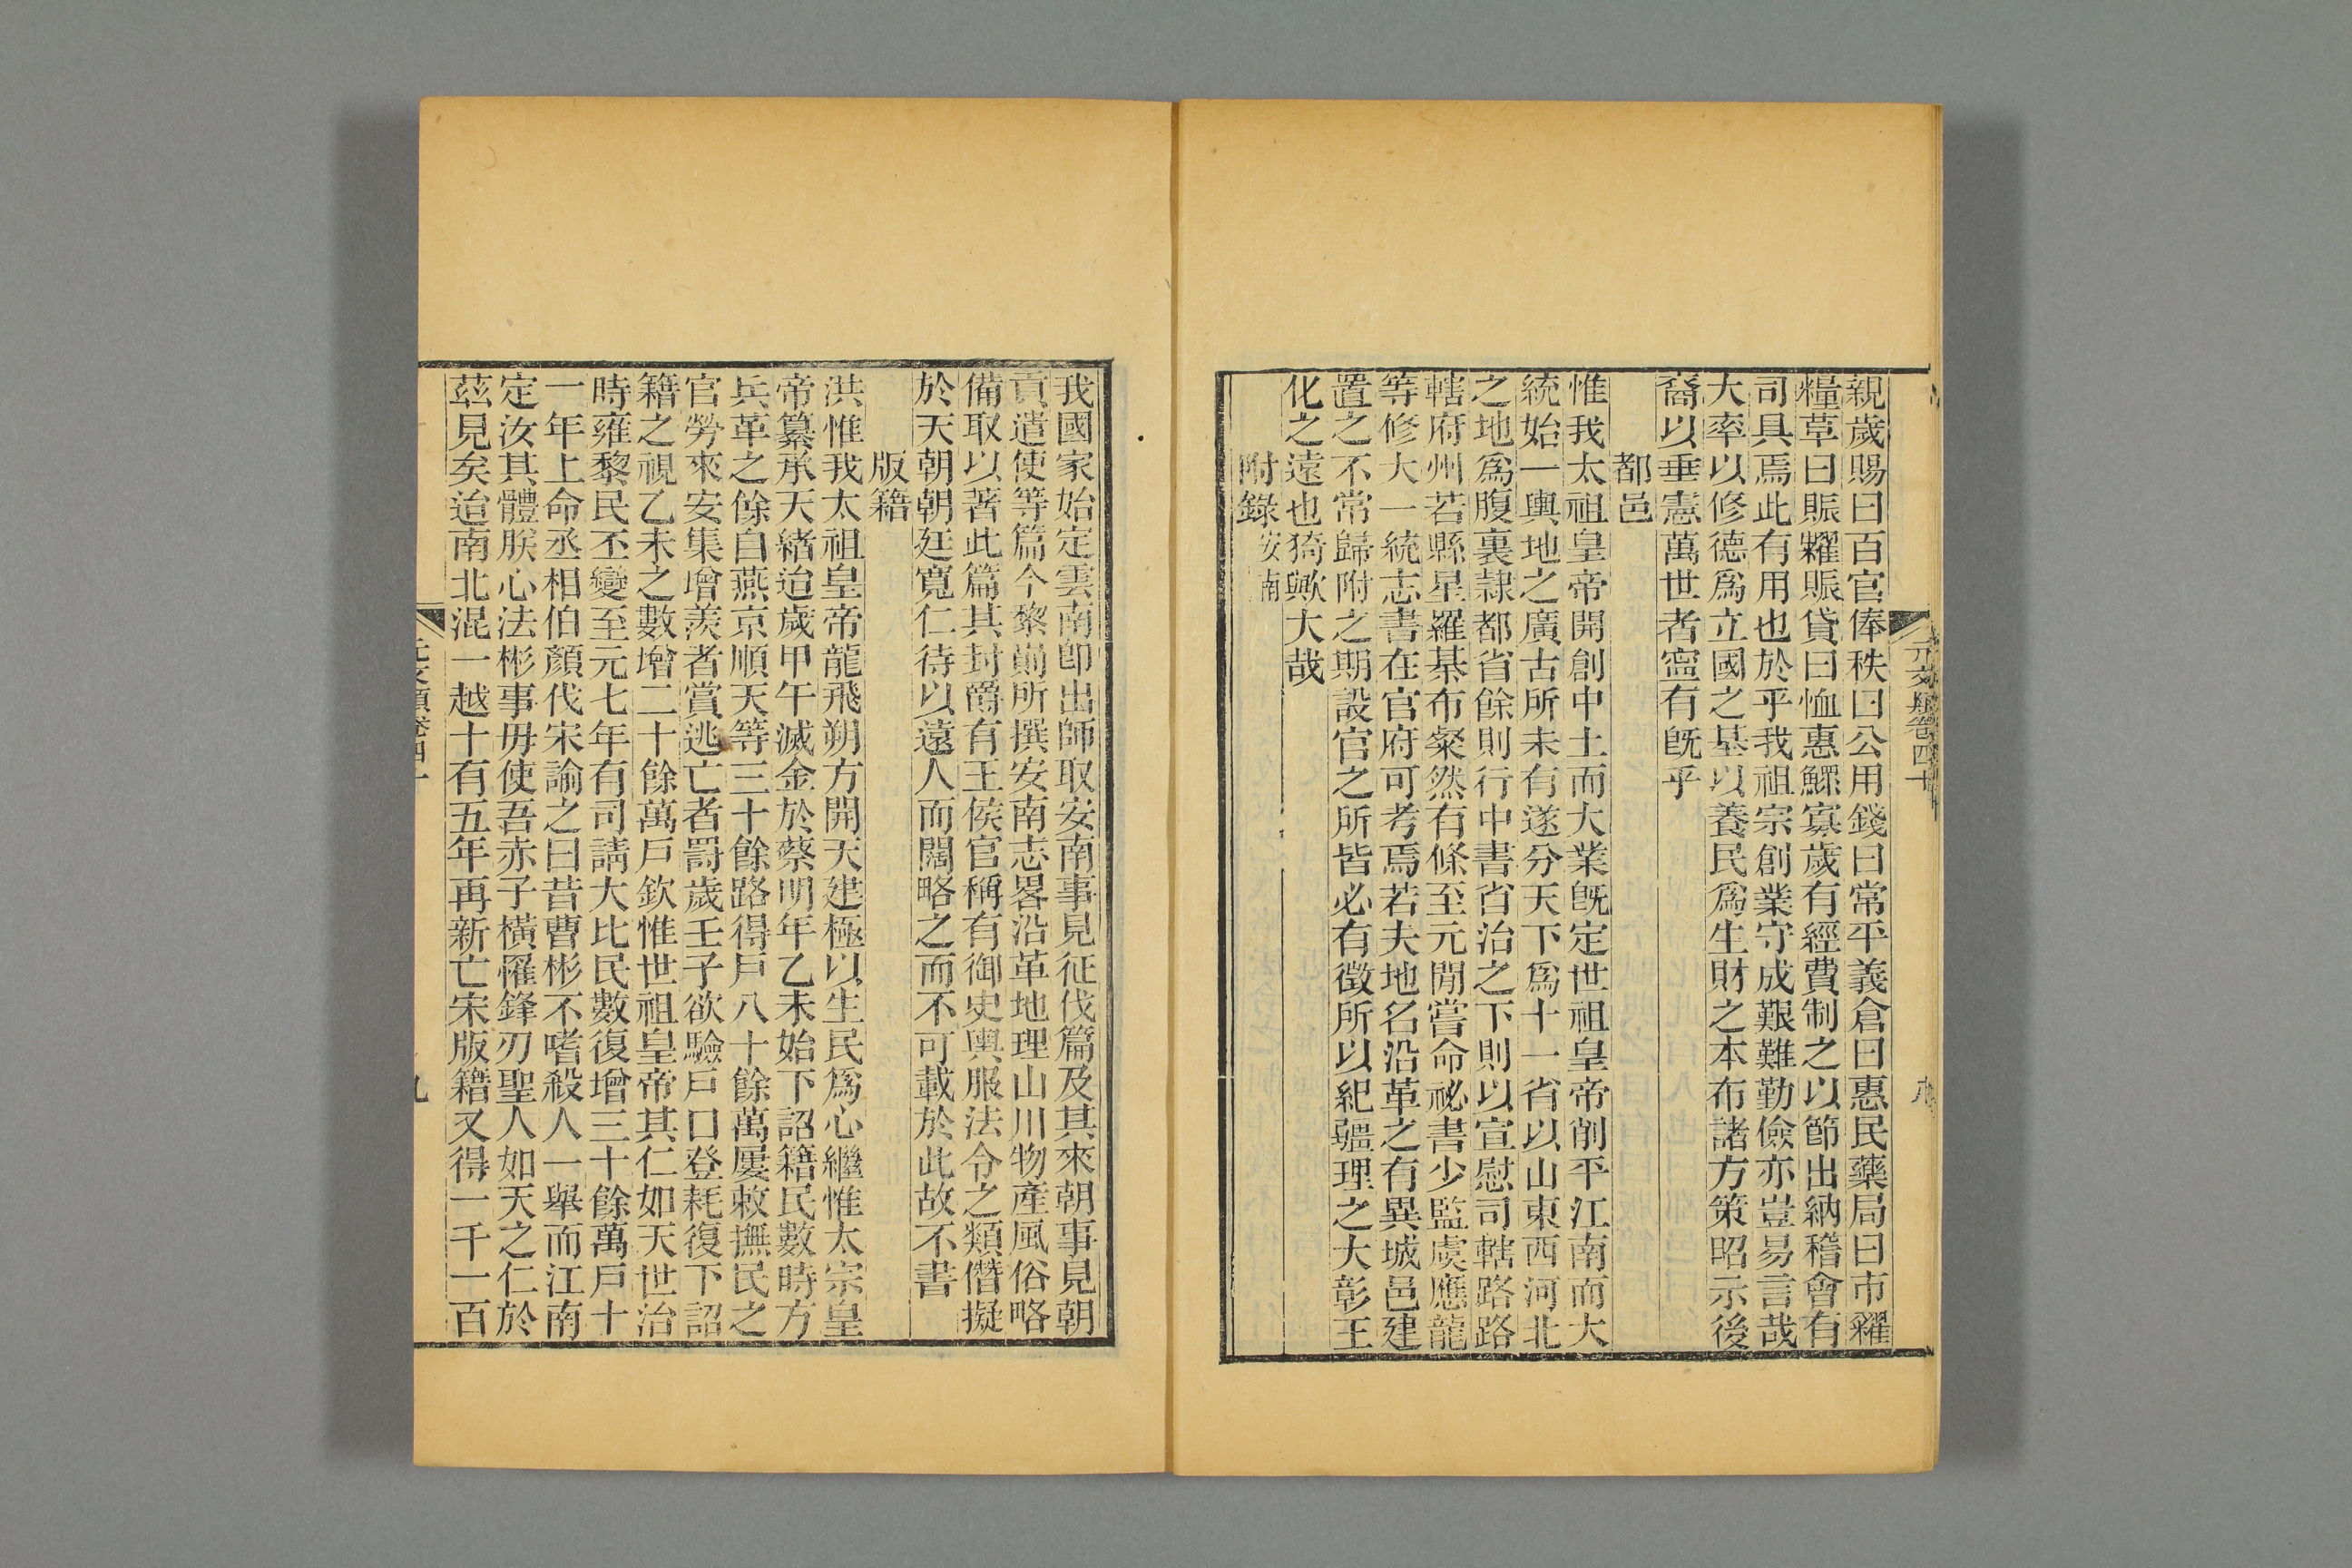 親歲賜曰百官俸秩曰公用錢曰常平義倉曰惠民藥局曰市糴
糧草曰賑糶賑貸曰恤惠鰥寡歲有經費制之以節出納稽會有
司具焉此有用也於乎我祖宗創業守成艱難勤儉亦豈易言哉
大率以修德爲立國之基以養民爲生財之本布諸方策昭示後
裔以垂憲萬世者寧有旣乎
都邑
惟我太祖皇帝開創中土而大業旣定世祖皇帝削平江南而大
統始一輿地之廣古所未有遂分天下爲十一省以山東西河北
之地爲腹裏隷都省餘則行中書省治之下則以宣慰司轄路路
轄府州若縣星羅棊布粲然有條至元閒嘗命祕書少監虞應龍
等修大一統志書在官府可考焉若夫地名沿革之有異城邑建
置之不常歸附之期設官之所皆必有徵所以紀疆理之大彰王
化之遠也猗歟大哉
附錄安南
元文類卷四十
我國家始定雲南卽出師取安南事見征伐篇及其來朝事見朝
貢遣使等篇今黎崱所撰安南志畧沿革地理山川物產風俗略
備取以著此篇其封爵有王侯官稱有御史輿服法令之類僭擬
於天朝朝廷寬仁待以遠人而闊略之而不可載於此故不書
版籍
洪惟我太祖皇帝龍飛朔方開天建極以生民爲心繼惟太宗皇
帝纂承天緒迨歲甲午滅金於蔡明年乙未始下詔籍民數時方
兵革之餘自燕京順天等三十餘路得戶八十餘萬屢敕撫民之
官勞來安集增羨者賞逃亡者罰歲壬子欲驗戶口登耗復下詔
籍之視乙未之數增二十餘萬戶欽惟世祖皇帝其仁如天世治
時雍黎民丕變至元七年有司請大比民數復增三十餘萬戶十
一年上命丞相伯顏伐宋諭之曰昔曹彬不嗜殺人一舉而江南
定汝其體朕心法彬事毋使吾赤子橫罹鋒刃聖人如天之仁於
茲見矣迨南北混一越十有五年再新亡宋版籍又得一千一百
九